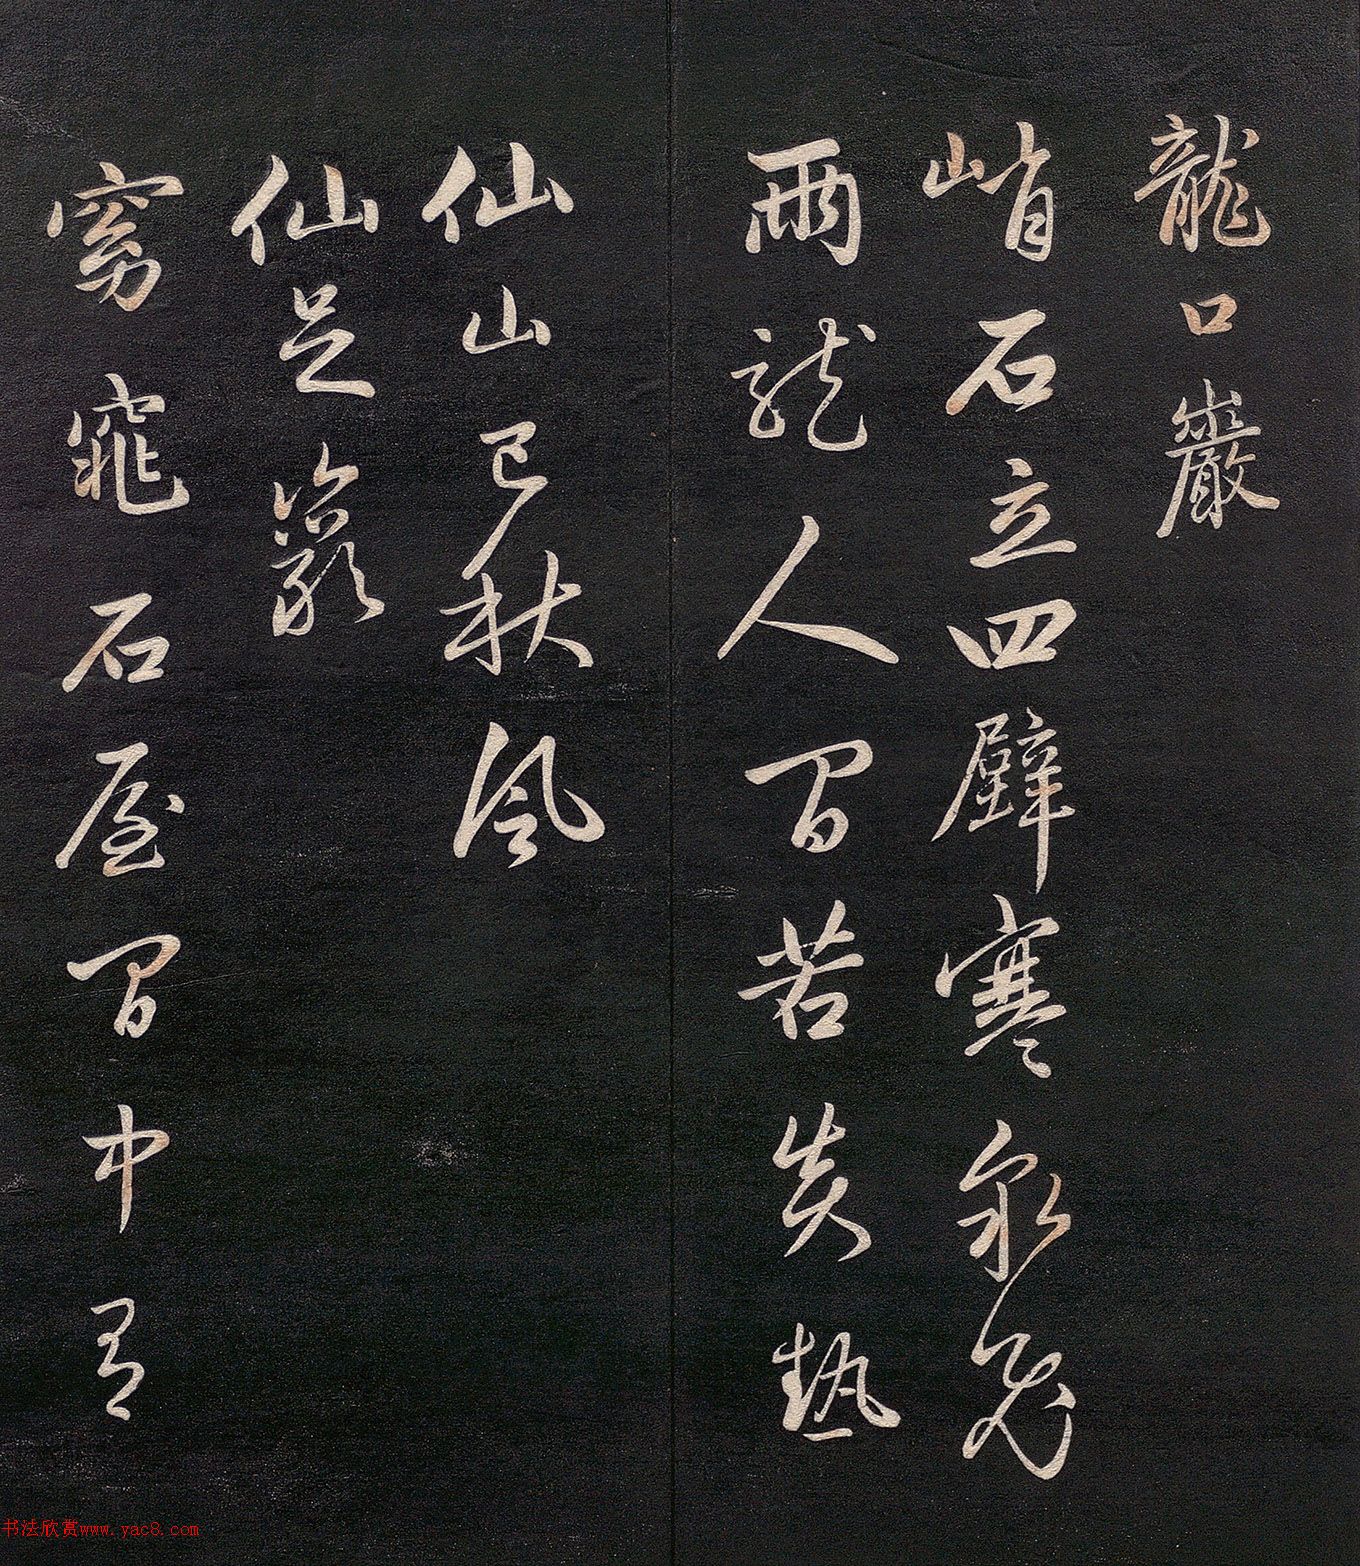 龍口巖
峭石立四壁寒泉飛
兩龍人間苦炎熱
仙山已秋風
仙足巖
窈窕石屋間中有
书法欣赏www.yac8.com